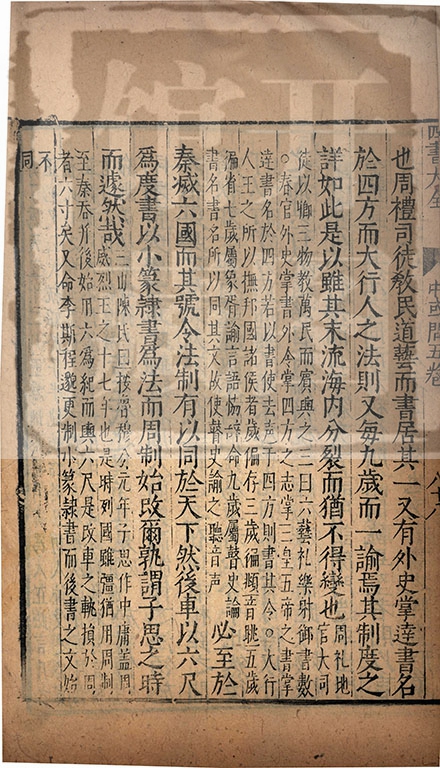 也周禮司徒敎民道藝而書居其一又有外史掌達書名
於四方而大行人之法則又毎九歲而一諭焉其制度之
詳如此是以雖其末流海内分裂而猶不得變也周礼地官大司
徒以鄉三物敎萬民而賓興之三曰六藝礼樂射御書數
○春官外史掌書外令掌四方之志掌三皇五帝之書掌
達書名於四方若以書使去声于四方則書其令○大行
人王之所以撫邦國諸侯者歲徧存三歲徧頫音眺五歲
徧省七歲屬象胥諭言語恊辞命九歲屬瞽史諭
書名書名所以同其文故使瞽史諭之聽音声
必至於
秦滅六國而其號令法制有以同於天下然後車以六尺
為度書以小篆隷書為法而周制始改爾孰謂子思之時
而遽然哉
三山陳氏曰按魯穆公元年子思作中庸盖周
威烈王之十七年也是時列國雖彊猶用周制
至秦吞并後始用六為紀而輿六尺是改車之軌損於周
者六寸矣又命李斯程邈更制小篆隷書而後書之文始
不同
中或問五卷